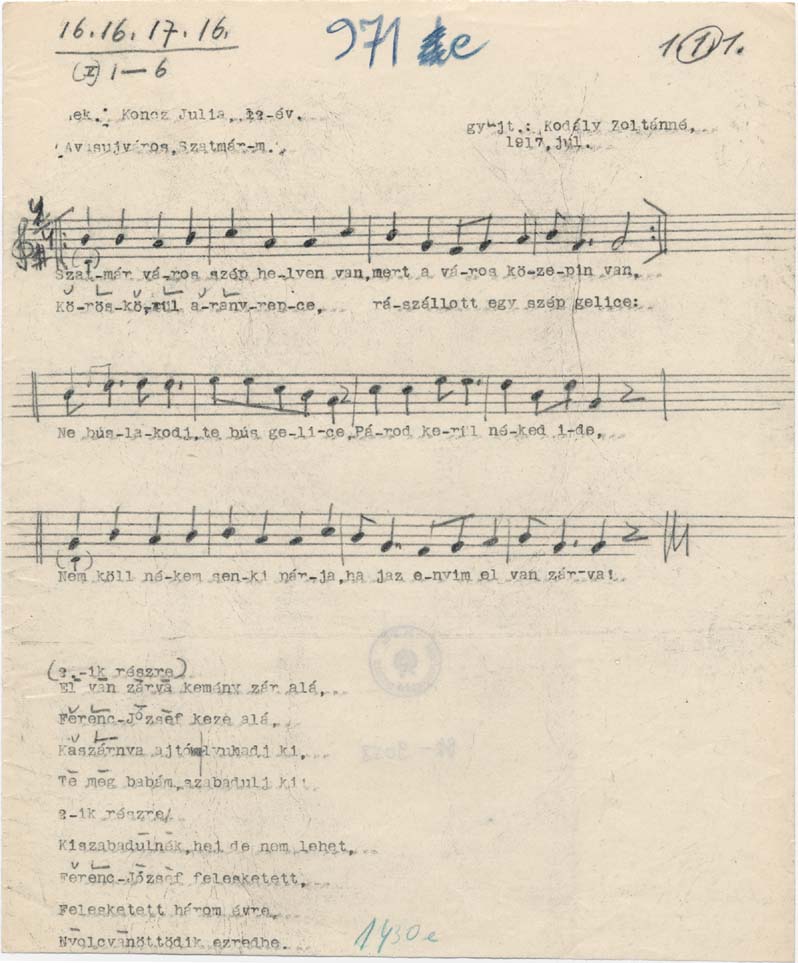 16.16.17.16.
971 e
1.1.1.
(V) 1—6
ek.: Koncz Julia, 22-év.
gyűjt.: Kodály Zoltánné,
Avasujváros, Szatmár-m.
1917, júl.
Szat-már vá-ros szép he-lyen van, mert a vá-ros kö-ze-pin van,
Kö-rös-kö-rül a-rany-ren-ce, rá-szállott egy szép gelice:
Ne bús-la-kodj, te bús ge-li-ce, Pá-rod ke-rül né-ked i-de,
Nem köll né-kem sen-ki pár-ja, ha jaz e-nyim el van zár-va!
(2.-ik részre)
El van zárva kemény zár alá,
Ferenc-József keze alá,
Kaszárnya ajtó lyukadj ki,
Te meg babám, szabadulj ki!
2-ik részre/
Kiszabadulnék, hej de nem lehet,
Ferenc-József felesketett,
Felesketett három évre,
Nyolcvanöttödik ezredbe.
1430e